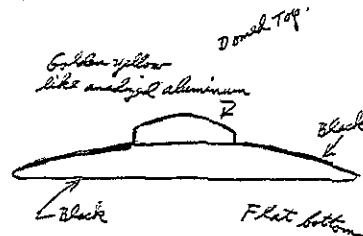 Domed Top.
Golden yellow
like anodized aluminum
Black
Black
Flat bottom